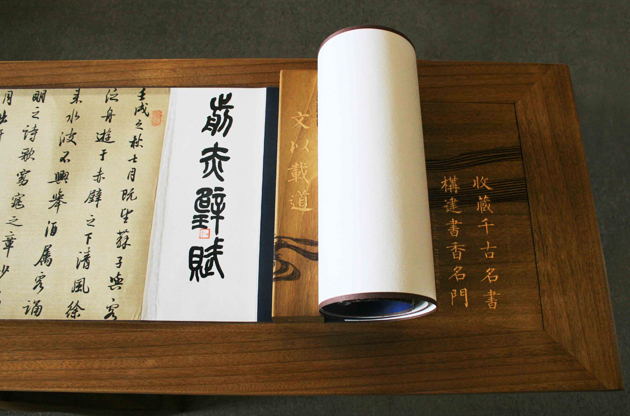 收藏千古名書
構建書香名門
文以載道
前赤壁賦
壬戌之秋七月既望蘇子與客
泛舟遊于赤壁之下清風徐
来水波不興舉酒屬客誦
明之詩歌窈窕之章少
月出